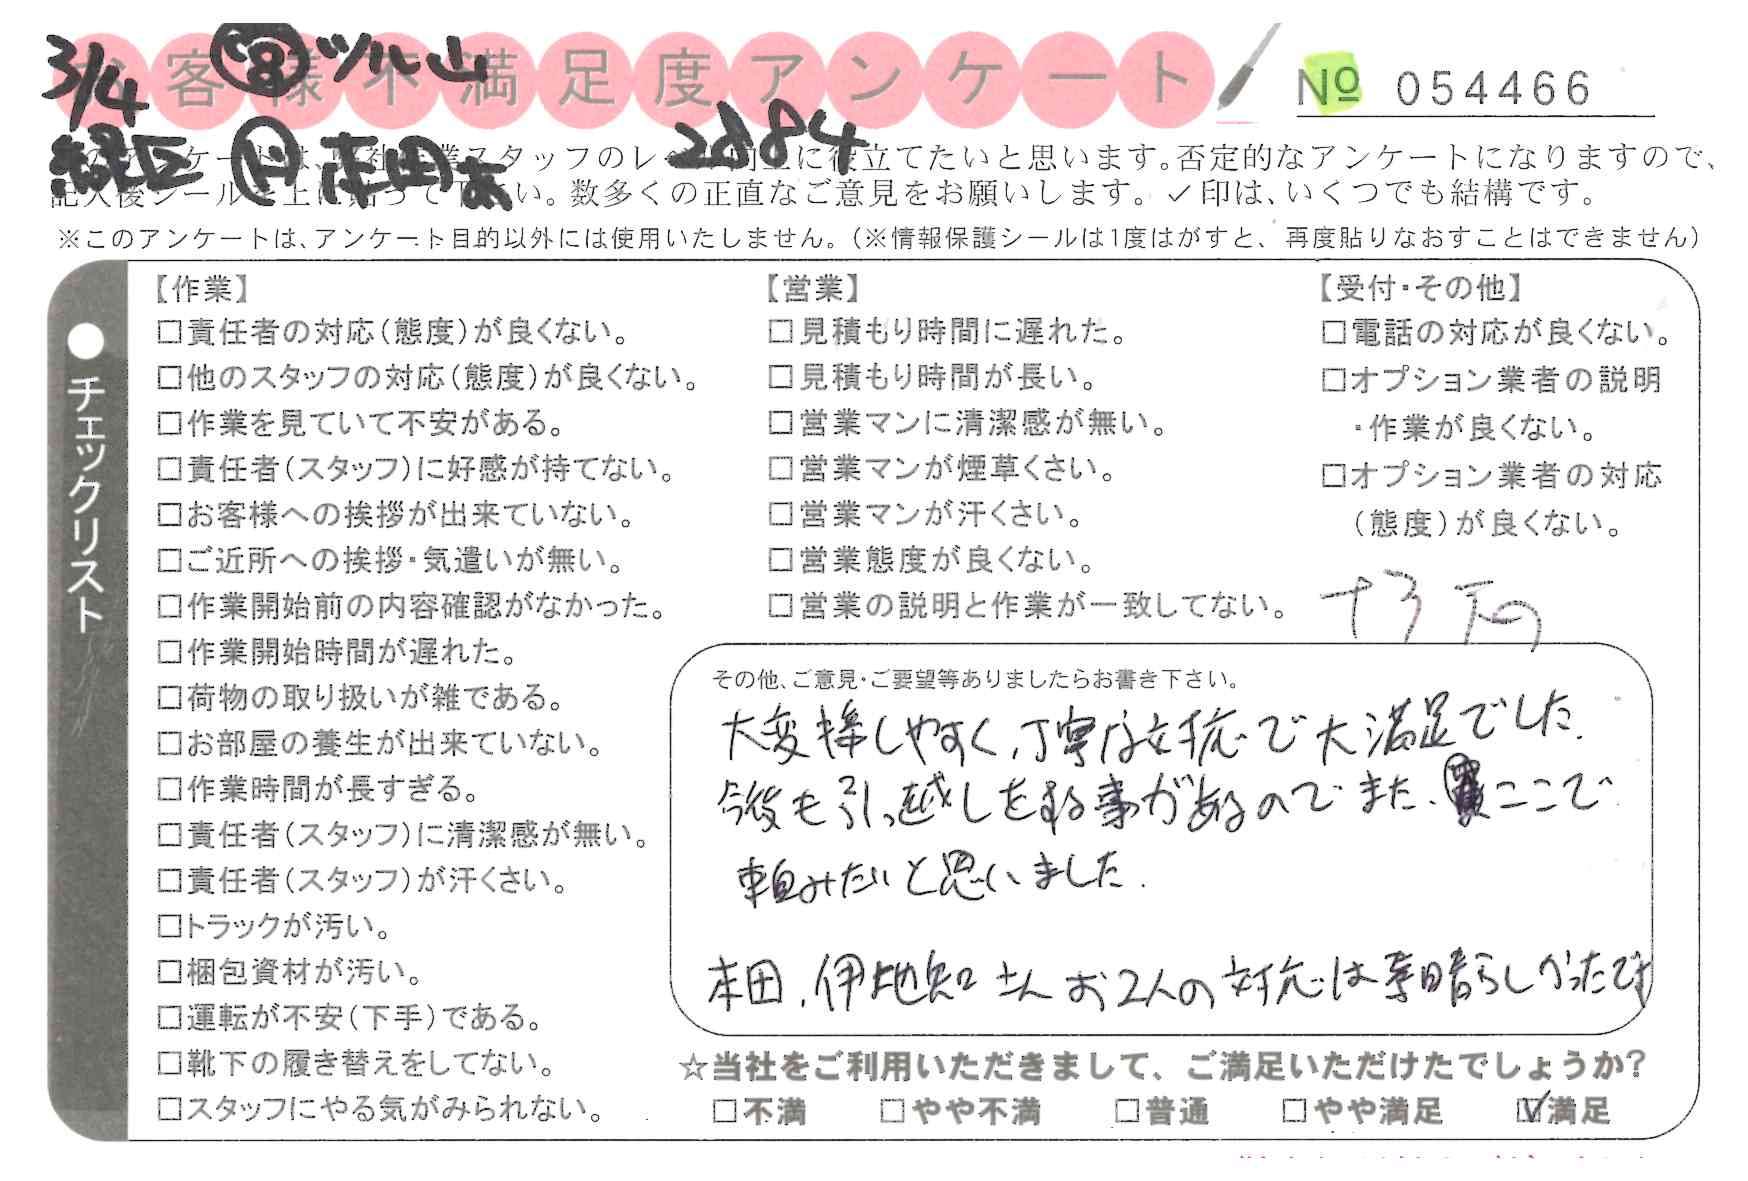 3/4 ツル山
お客様不満足度アンケート
No 054466
緑区 本田あ 2884
このアンケートは、当社作業スタッフのレベル向上に役立てたいと思います。否定的なアンケートになりますので、
記入後シールを上に貼って下さい。数多くの正直なご意見をお願いします。✓印は、いくつでも結構です。
※このアンケートは、アンケート目的以外には使用いたしません。(※情報保護シールは1度はがすと、再度貼りなおすことはできません)
●チェックリスト
【作業】
□責任者の対応(態度)が良くない。
□他のスタッフの対応(態度)が良くない。
□作業を見ていて不安がある。
□責任者(スタッフ)に好感が持てない。
□お客様への挨拶が出来ていない。
□ご近所への挨拶・気遣いが無い。
□作業開始前の内容確認がなかった。
□作業開始時間が遅れた。
□荷物の取り扱いが雑である。
□お部屋の養生が出来ていない。
□作業時間が長すぎる。
□責任者(スタッフ)に清潔感が無い。
□責任者(スタッフ)が汗くさい。
□トラックが汚い。
□梱包資材が汚い。
□運転が不安(下手)である。
□靴下の履き替えをしてない。
□スタッフにやる気がみられない。
【営業】
□見積もり時間に遅れた。
□見積もり時間が長い。
□営業マンに清潔感が無い。
□営業マンが煙草くさい。
□営業マンが汗くさい。
□営業態度が良くない。
□営業の説明と作業が一致してない。
【受付・その他】
□電話の対応が良くない。
□オプション業者の説明
・作業が良くない。
□オプション業者の対応
(態度)が良くない。
その他、ご意見・ご要望等ありましたらお書き下さい。
大変接しやすく、丁寧な対応で大満足でした。
今後も引っ越しをする事があるのでまた、ここで
頼みたいと思いました。
本田、伊地知さんお2人の対応は素晴らしかったです
☆当社をご利用いただきまして、ご満足いただけたでしょうか?
□不満 □やや不満 □普通 □やや満足 ☑満足